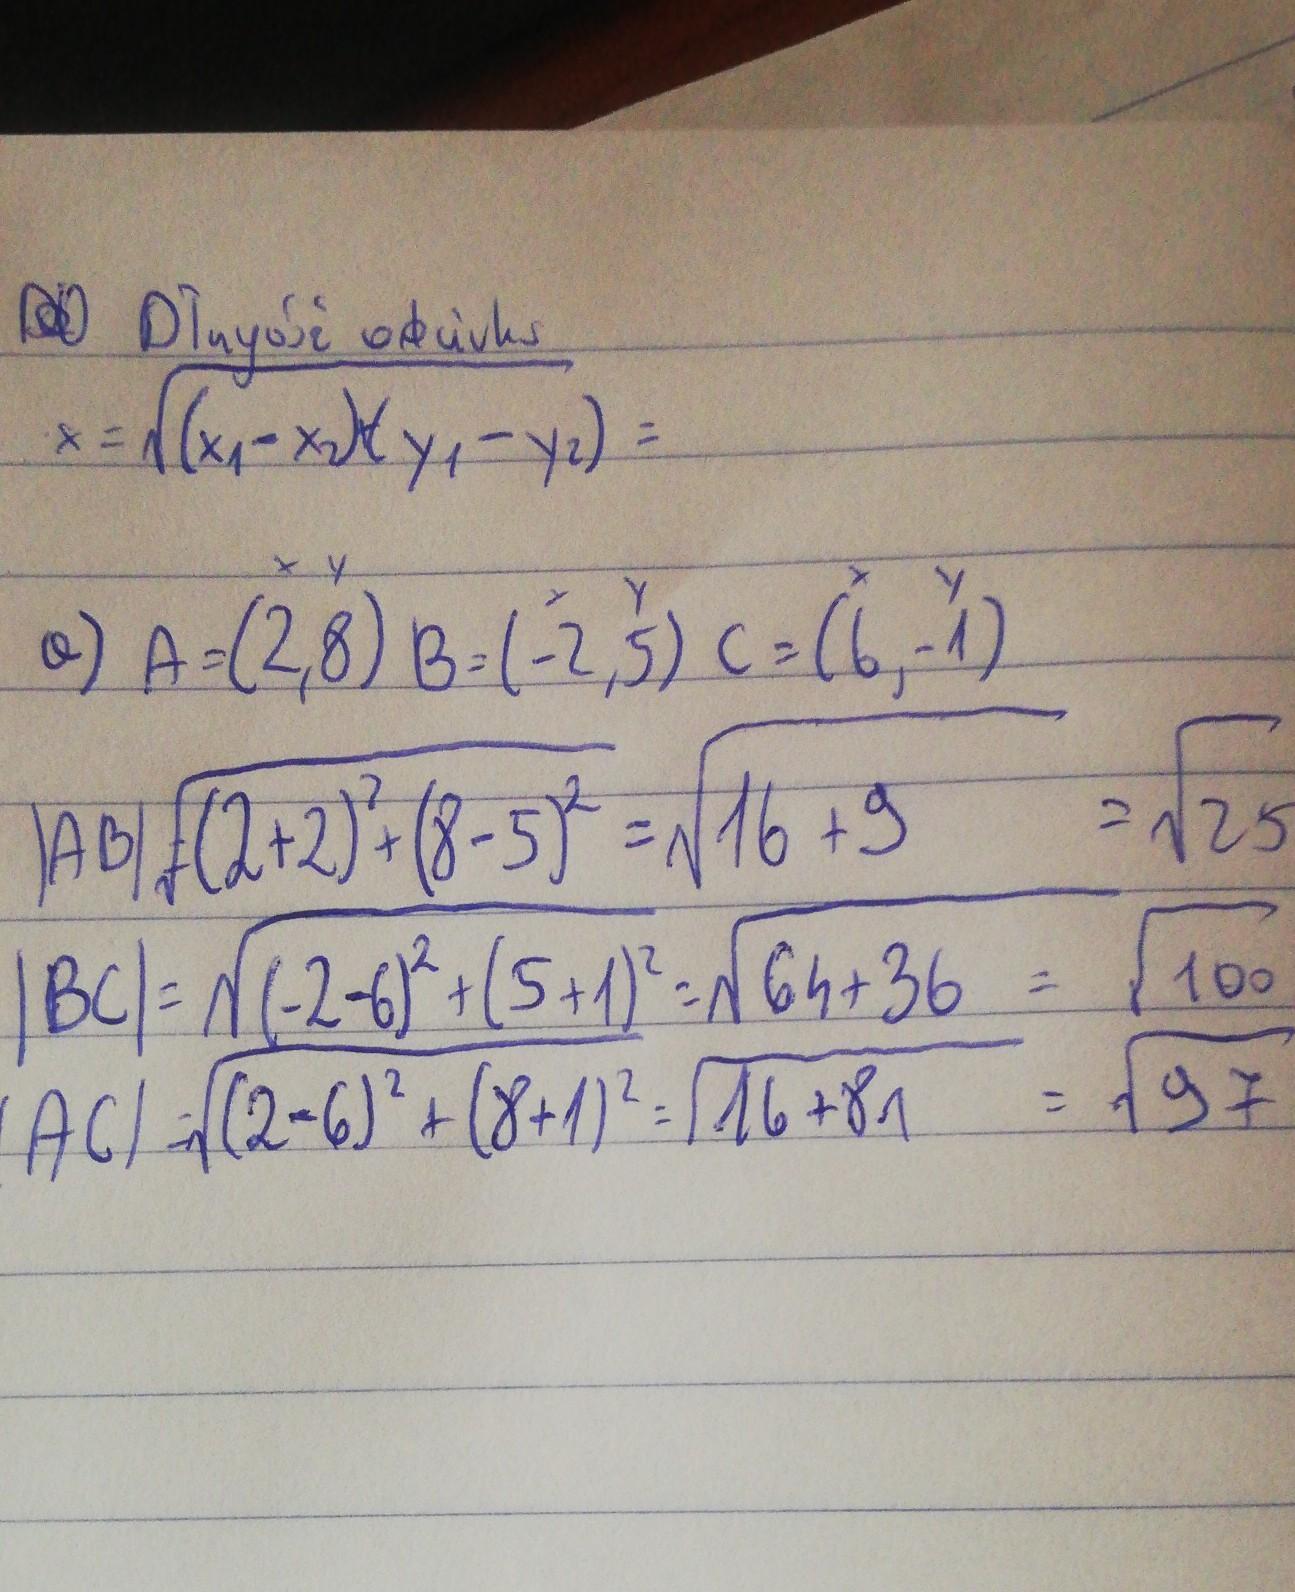 Długość odcinka
x = √(x₁ - x₂)+(y₁ - y₂) =
x y x y x y
a) A = (2,8) B = (-2,5) C = (6,-1)
|AB| = √(2+2)² + (8-5)² = √16 + 9 = √25
|BC| = √(-2-6)² + (5+1)² = √64+36 = √100
|AC| = √(2-6)² + (8+1)² = √16+81 = √97